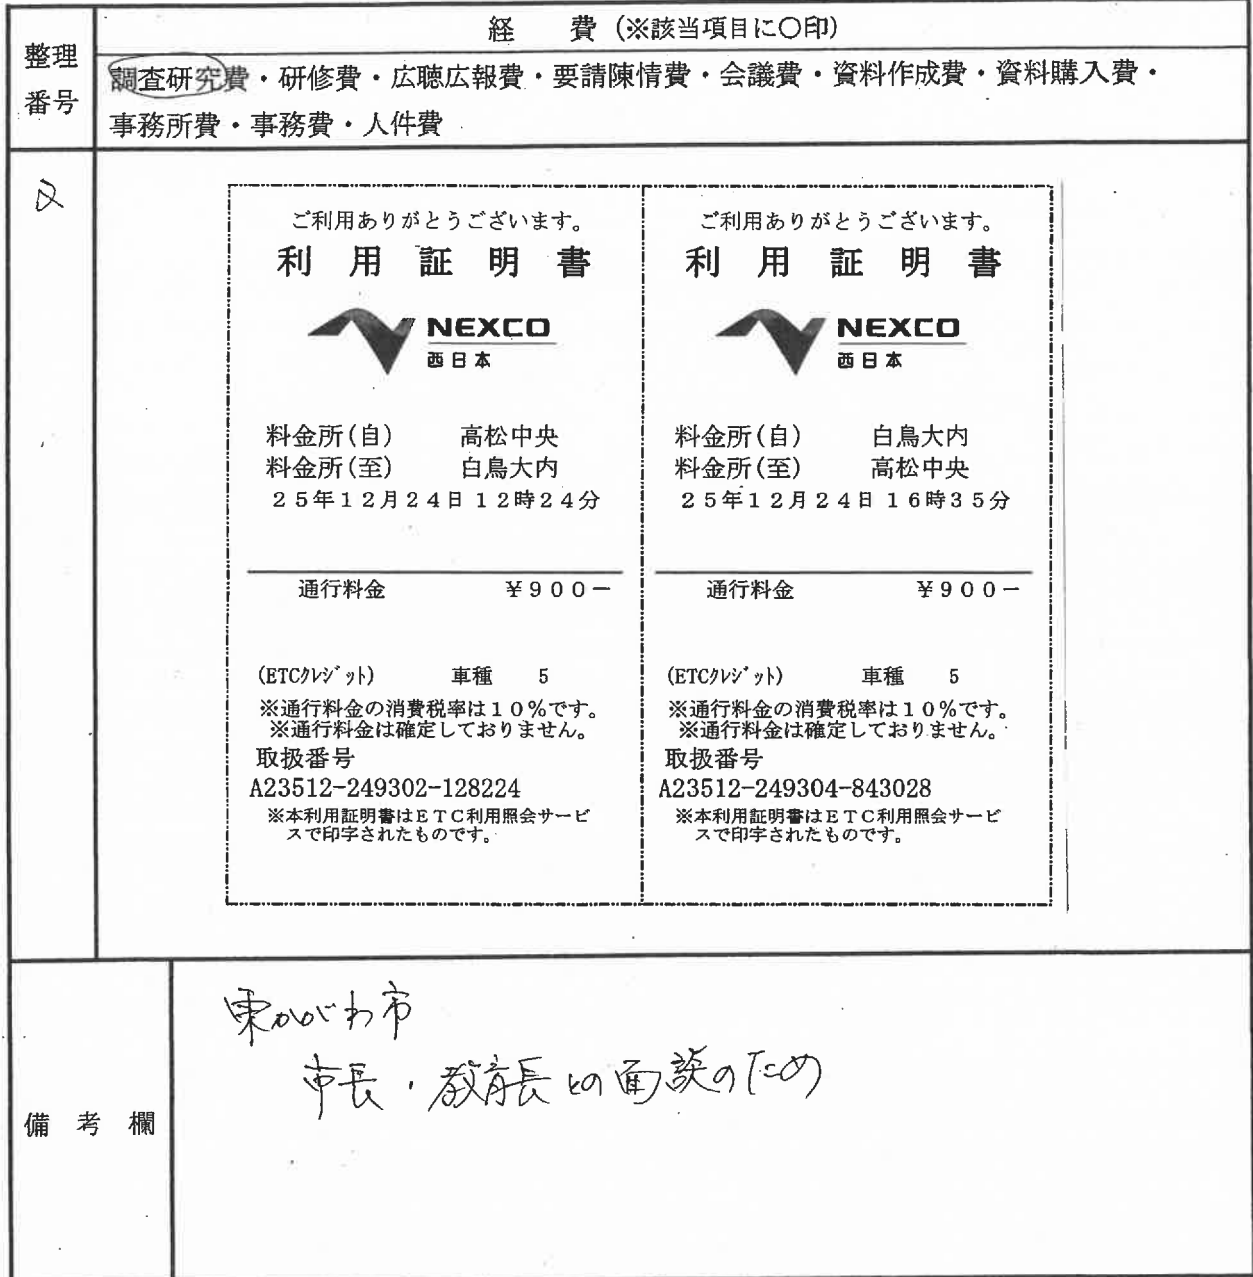 整理
番号
経　費（※該当項目に〇印）
調査研究費・研修費・広聴広報費・要請陳情費・会議費・資料作成費・資料購入費・
事務所費・事務費・人件費
2
ご利用ありがとうございます。
利用証明書
NEXCO
西日本
料金所(自)　高松中央
料金所(至)　白鳥大内
２５年１２月２４日１２時２４分
通行料金　￥９００－
(ETCｸﾚｼﾞｯﾄ)　車種　5
※通行料金の消費税率は１０％です。
※通行料金は確定しておりません。
取扱番号
A23512-249302-128224
※本利用証明書はＥＴＣ利用照会サービ
スで印字されたものです。
ご利用ありがとうございます。
利用証明書
NEXCO
西日本
料金所(自)　白鳥大内
料金所(至)　高松中央
２５年１２月２４日１６時３５分
通行料金　￥９００－
(ETCｸﾚｼﾞｯﾄ)　車種　5
※通行料金の消費税率は１０％です。
※通行料金は確定しておりません。
取扱番号
A23512-249304-843028
※本利用証明書はＥＴＣ利用照会サービ
スで印字されたものです。
備考欄
東かがわ市
市長・教育長との面談のため